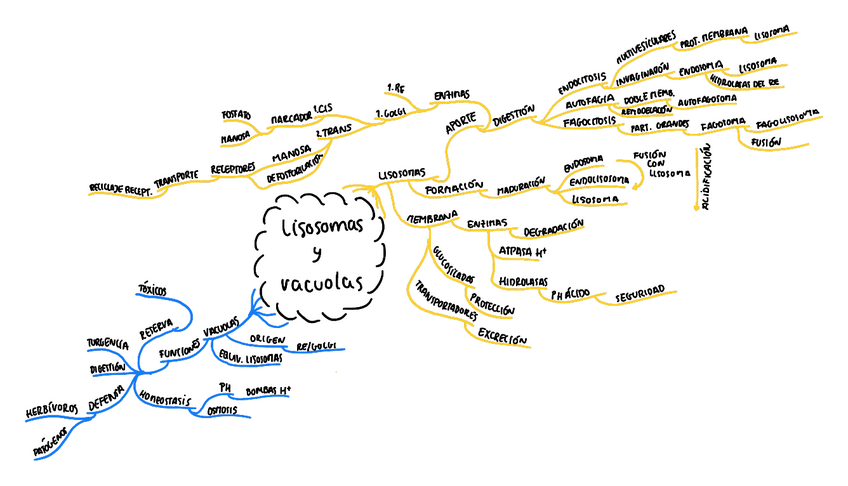 Lisosomas
y
vacuolas
LISOSOMAS
APORTE
DIGESTIÓN
ENDOCITOSIS
MULTIVESICULARES
PROT. MEMBRANA
LISOSOMA
INVAGINARÓN
ENDOSOMA
LISOSOMA
HIDROLASAS DEL RE
AUTOFAGIA
DOBLE MEMB.
REMODELACIÓN
AUTOFAGOSOMA
FAGOCITOSIS
PART. GRANDES
FAGOTOMA
FAGOLISOSOMA
FUSIÓN
ACIDIFICACIÓN
ENZIMAS
1. RE
2. GOLGI
1. CIS
MARCADOR
FOSFATO
MANOSA
2. TRANS
MANOSA
DEFOSFORILACIÓN
RECEPTORES
TRANSPORTE
RECICLAJE RECEPT.
FORMACIÓN
MADURACIÓN
ENDOSOMA
ENDOLISOSOMA
LISOSOMA
FUSIÓN
CON
LISOSOMA
MEMBRANA
ENZIMAS
DEGRADACIÓN
ATPASA H+
HIDROLASAS
PH ÁCIDO
SEGURIDAD
GLUCOSILADAS
PROTECCIÓN
TRANSPORTADORES
EXCRECIÓN
VACUOLAS
ORIGEN
RE/GOLGI
EQUIV. LISOSOMAS
FUNCIONES
RESERVA
TÓXICOS
TURGENCIA
DIGESTIÓN
DEFENSA
HERBÍVOROS
PATÓGENOS
HOMEOSTASIS
PH
BOMBAS H+
OSMOSIS